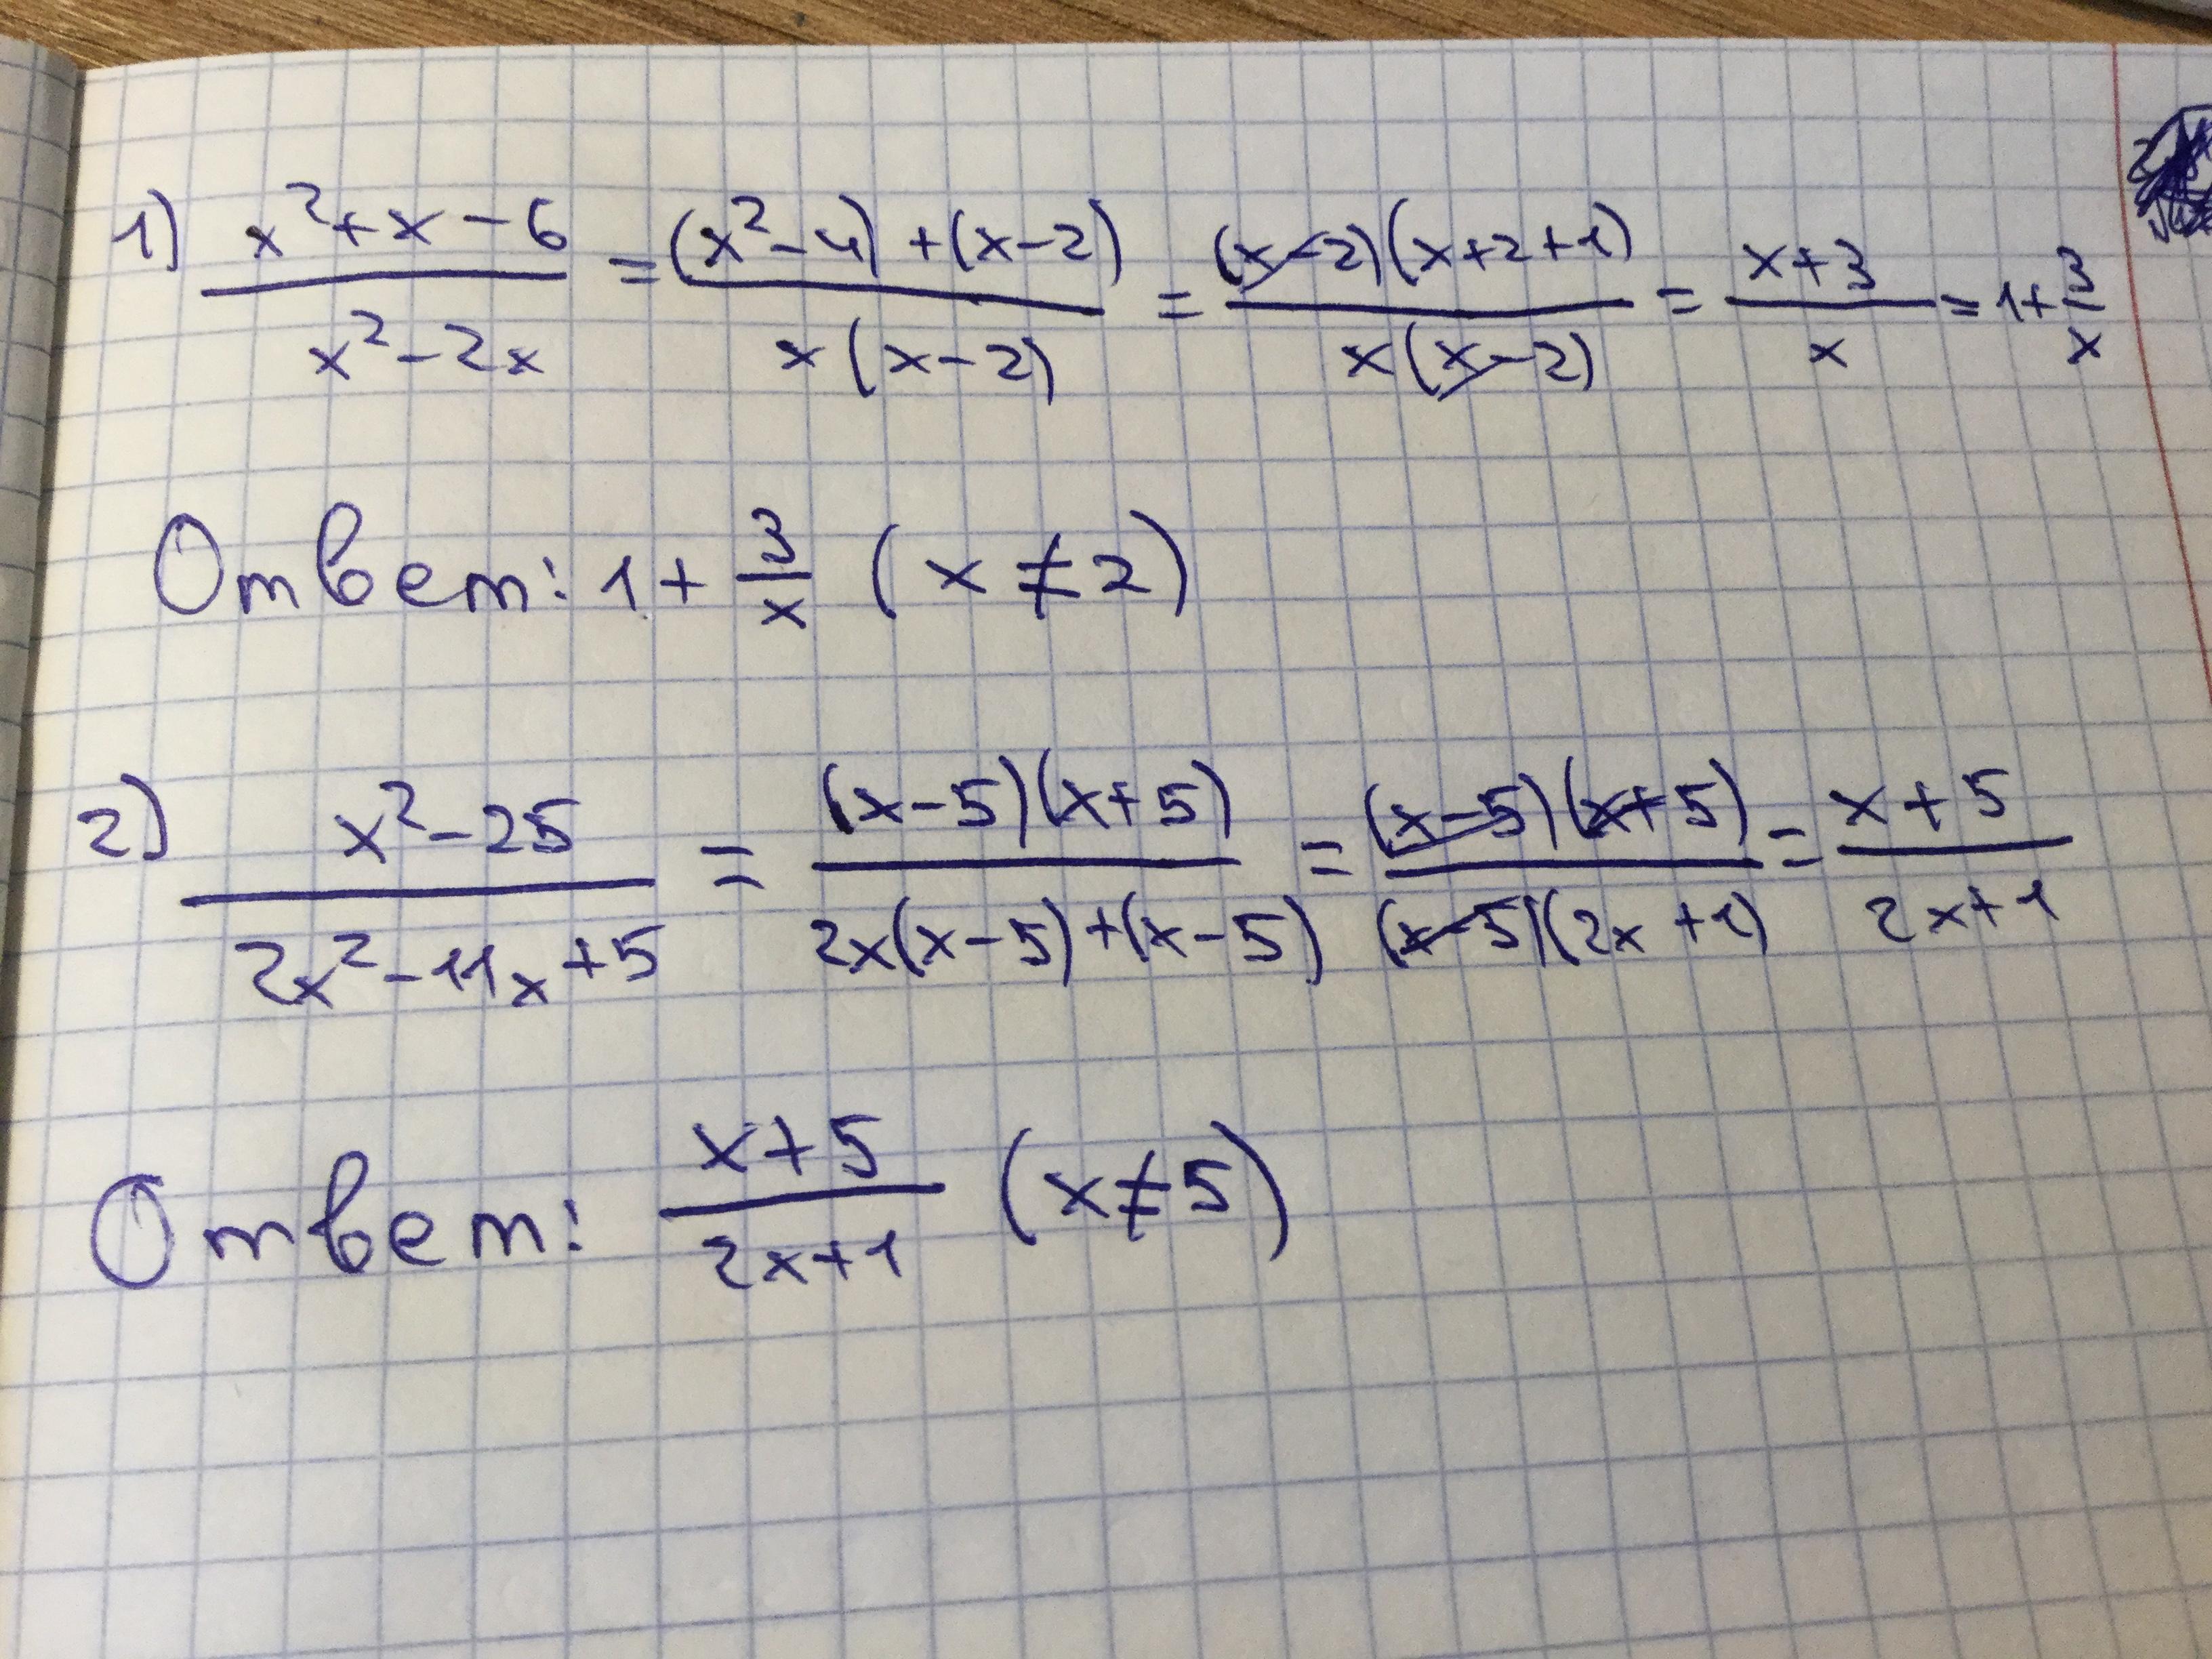 1) (x²+x-6)/(x²-2x) = ((x²-4)+(x-2))/(x(x-2)) = ((x-2)(x+2+1))/(x(x-2)) = (x+3)/x = 1+3/x
Ответ: 1+3/x (x≠2)
2) (x²-25)/(2x²-11x+5) = ((x-5)(x+5))/(2x(x-5)+(x-5)) = ((x-5)(x+5))/((x-5)(2x+1)) = (x+5)/(2x+1)
Ответ: (x+5)/(2x+1) (x≠5)